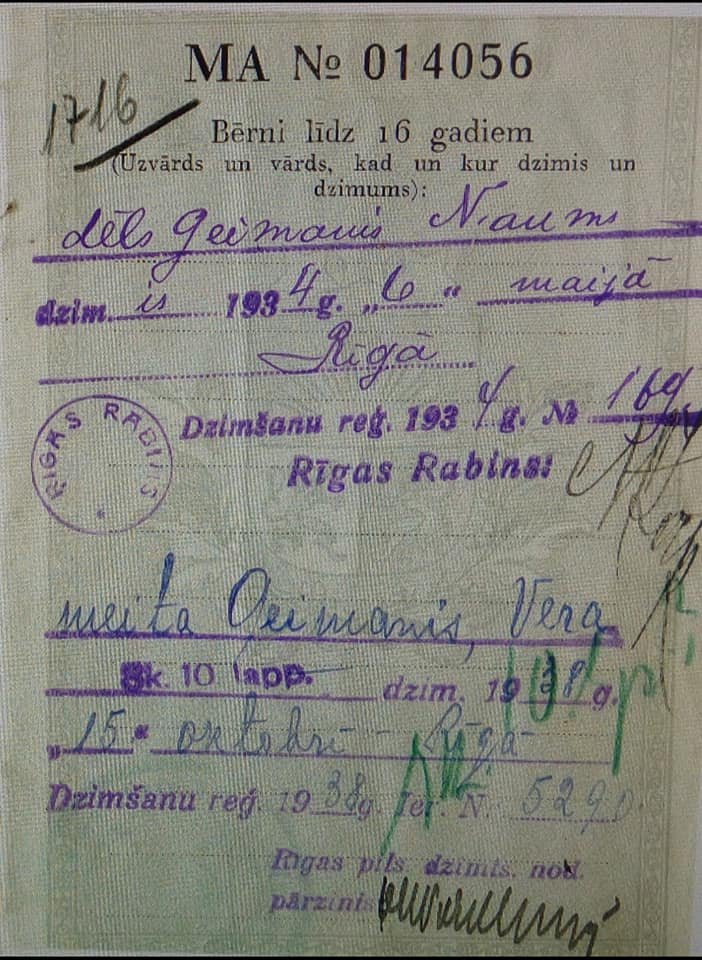 MA № 014056
1716
Bērni līdz 16 gadiem
(Uzvārds un vārds, kad un kur dzimis un
dzimums):
dēls Geimanis Naums
dzim. is 1934 g. „6" maijā
Rīgā
RIGAS RABINS
Dzimšanu reģ. 1934 g. № 169
Rīgas Rabins:
meita Geimanis, Vera
Sk. 10 lapp.
dzim. 1938 g.
„15" oktobrī - Rīgā
Dzimšanu reģ. 1938 g. Ier. N. 5290
Rīgas pils. dzimts. nod.
pārzinis